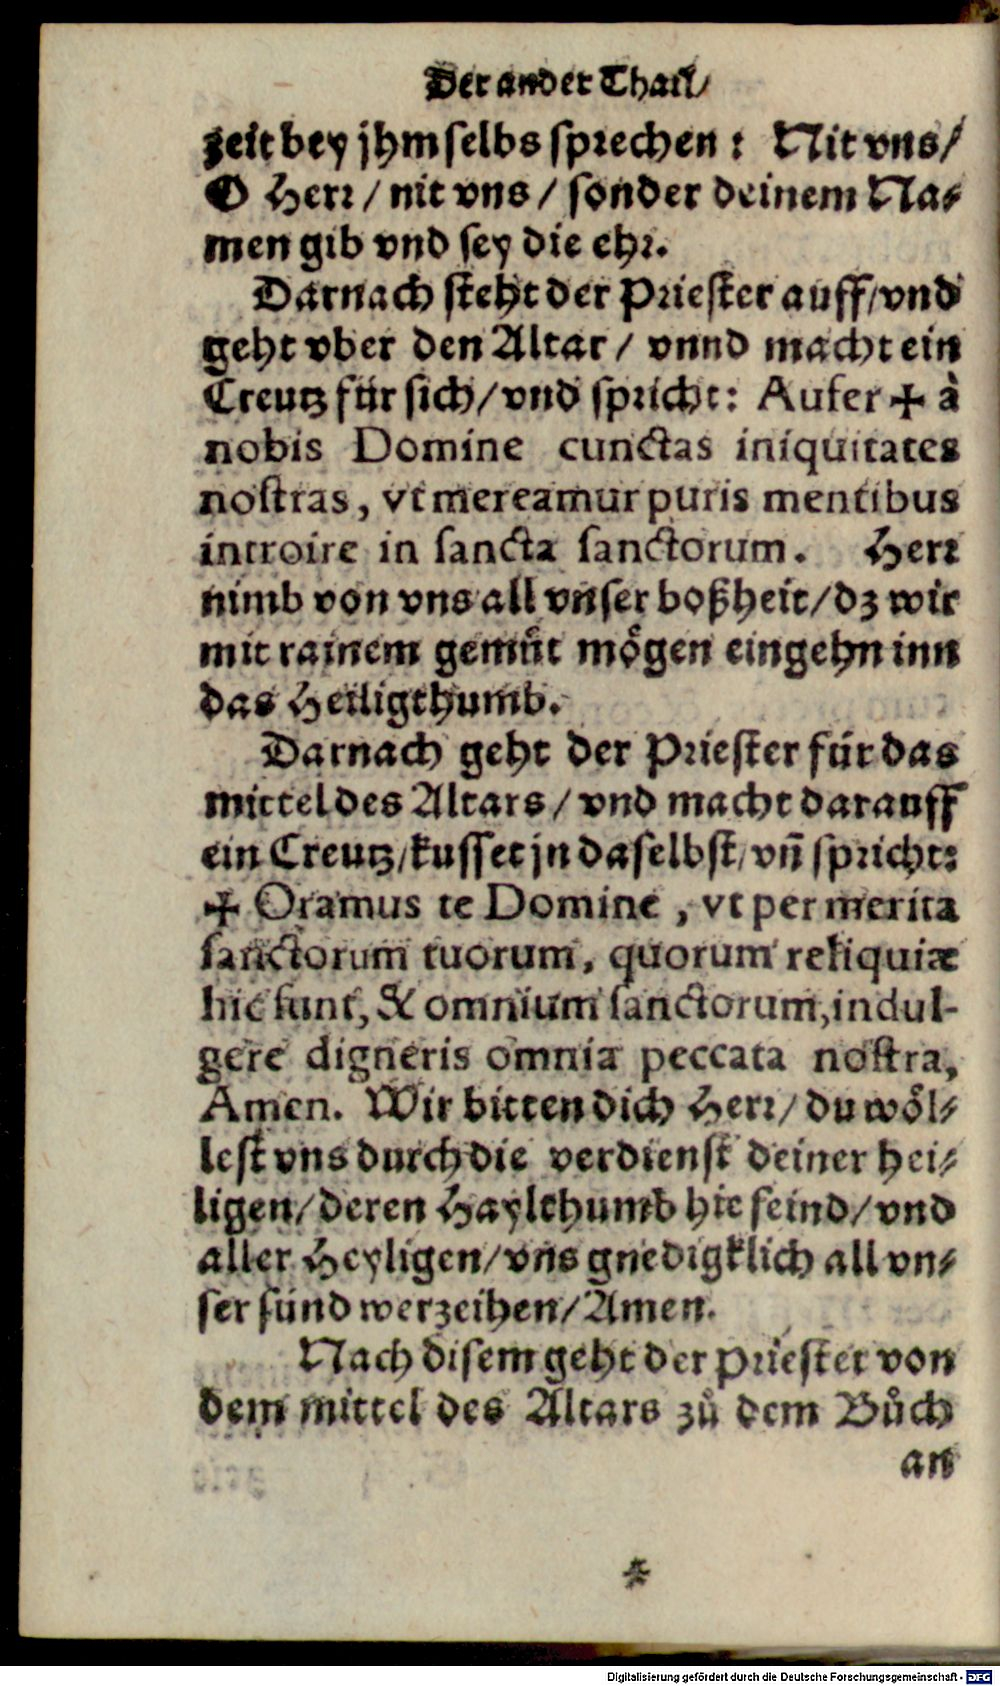 Der ander Thail/
zeit bey jhm selbs sprechen: Nit vns/
O Herr / nit vns / sonder deinem Na-
men gib vnd sey die ehr.
Darnach steht der Priester auff/ vnd
geht vber den Altar / vnnd macht ein
Creutz für sich/ vnd spricht: Aufer ✠ à
nobis Domine cunctas iniquitates
nostras, vt mereamur puris mentibus
introire in sancta sanctorum. Herr
nimb von vns all vnser boßheit/ dz wir
mit rainem gemüt mögen eingehn inn
das Heiligthumb.
Darnach geht der Priester für das
mittel des Altars / vnd macht darauff
ein Creutz/ kusset jn daselbst/ vñ spricht:
✠ Oramus te Domine , vt per merita
sanctorum tuorum, quorum reliquiæ
hic sunt, & omnium sanctorum, indul-
gere digneris omnia peccata nostra,
Amen. Wir bitten dich Herr/ du wöl-
lest vns durch die verdienst deiner hei-
ligen/ deren Haylthumb hie seind/ vnd
aller Heyligen/ vns gnedigklich all vn-
ser sünd werzeihen/ Amen.
Nach disem geht der Priester von
dem mittel des Altars zů dem Bůch
an
*
Digitalisierung gefördert durch die Deutsche Forschungsgemeinschaft - DFG